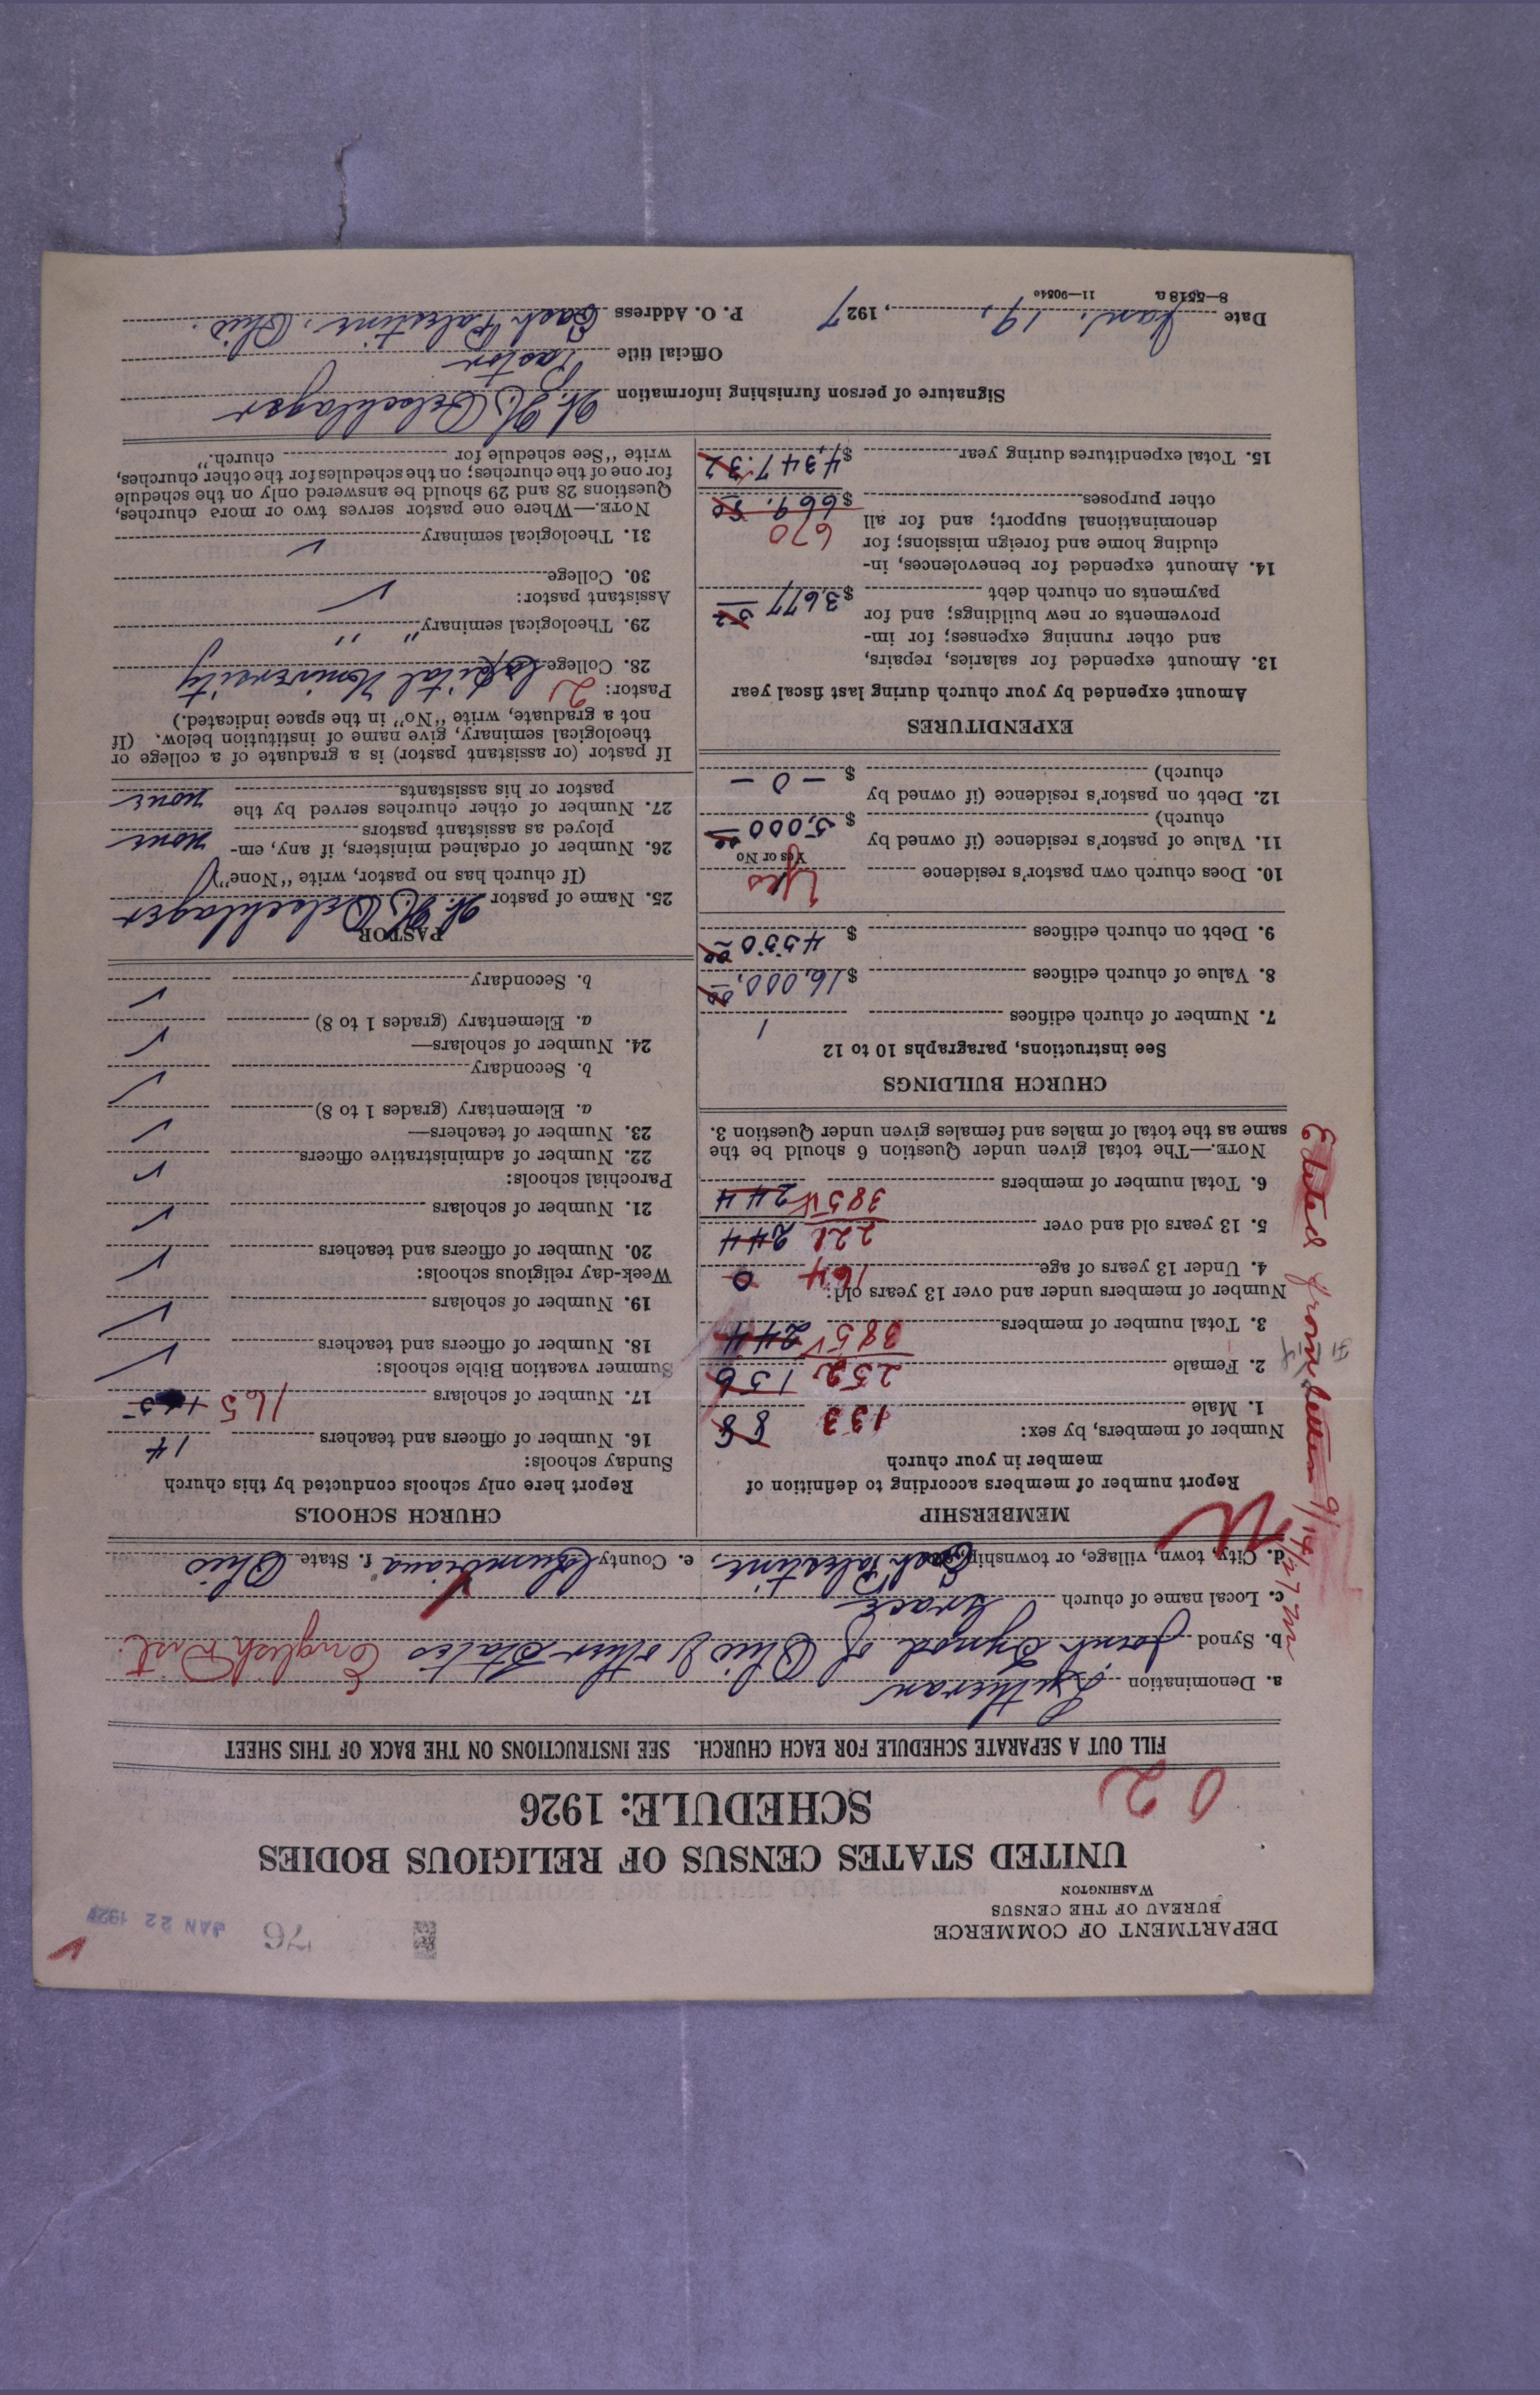 DEPARTMENT OF COMMERCE
BUREAU OF THE CENSUS
WASHINGTON
76
JAN 22 1927
UNITED STATES CENSUS OF RELIGIOUS BODIES
SCHEDULE: 1926
02
FILL OUT A SEPARATE SCHEDULE FOR EACH CHURCH. SEE INSTRUCTIONS ON THE BACK OF THIS SHEET
a. Denomination Lutheran
b. Synod Joint Synod of Ohio & other States English Dist.
c. Local name of church Grace
d. City, town, village, or township East Palestine e. County Columbiana f. State Ohio
MEMBERSHIP
Report number of members according to definition of
member in your church
Number of members, by sex:
1. Male 133 88
2. Female 252 156
3. Total number of members 385 244
Number of members under and over 13 years old:
4. Under 13 years of age 164 0
5. 13 years old and over 221 244
6. Total number of members 385 244
NOTE.—The total given under Question 6 should be the
same as the total of males and females given under Question 3.
CHURCH BUILDINGS
See instructions, paragraphs 10 to 12
7. Number of church edifices 1
8. Value of church edifices $16,000,00
9. Debt on church edifices $4550 00
10. Does church own pastor's residence Yes
Yes or No
11. Value of pastor's residence (if owned by
church) $5,000 00
12. Debt on pastor's residence (if owned by
church) $ —0—
EXPENDITURES
Amount expended by your church during last fiscal year
13. Amount expended for salaries, repairs,
and other running expenses; for im-
provements or new buildings; and for
payments on church debt $3,677 52
14. Amount expended for benevolences, in-
cluding home and foreign missions; for
denominational support; and for all 670
other purposes $669.80
15. Total expenditures during year $4,347.32
CHURCH SCHOOLS
Report here only schools conducted by this church
Sunday schools:
16. Number of officers and teachers 14
17. Number of scholars 165
Summer vacation Bible schools:
18. Number of officers and teachers ✓
19. Number of scholars ✓
Week-day religious schools:
20. Number of officers and teachers ✓
21. Number of scholars ✓
Parochial schools:
22. Number of administrative officers ✓
23. Number of teachers— ✓
a. Elementary (grades 1 to 8) ✓
b. Secondary
24. Number of scholars— ✓
a. Elementary (grades 1 to 8) ✓
b. Secondary
PASTOR
25. Name of pastor W. H. Oelschlager
(If church has no pastor, write "None")
26. Number of ordained ministers, if any, em-
ployed as assistant pastors none
27. Number of other churches served by the
pastor or his assistants none
If pastor (or assistant pastor) is a graduate of a college or
theological seminary, give name of institution below. (If
not a graduate, write "No" in the space indicated.)
Pastor: 2
28. College Capital University
29. Theological seminary " "
Assistant pastor:
30. College ✓
31. Theological seminary ✓
NOTE.—Where one pastor serves two or more churches,
Questions 28 and 29 should be answered only on the schedule
for one of the churches; on the schedules for the other churches,
write "See schedule for church."
Signature of person furnishing information W. H. Oelschlager
Official title Pastor
Date Jan. 19, 1927 P. O. Address East Palestine, Ohio.
8—5518a 11—9054o
Edited from letter 9/14/27